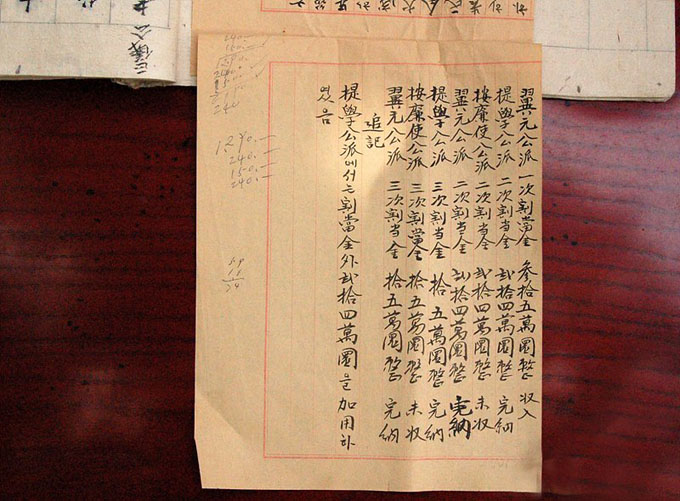 翼元公派 一次割當金 參拾五萬圜整 収入
提學公派 二次割当金 貳拾四萬圜整 完納
按廉使公派 二次割当金 貳拾四萬圜整 未収
翼元公派 二次割当金 貳拾四萬圜整 完納
提學公派 三次割当金 拾五萬圜整 完納
按廉使公派 三次割當金 拾五萬圜整 未収
翼元公派 三次割当金 拾五萬圜整 完納
追記
提學公派에서는 割當金外 貳拾四萬圜을 加用하
였음
240.-
150.-
240.-